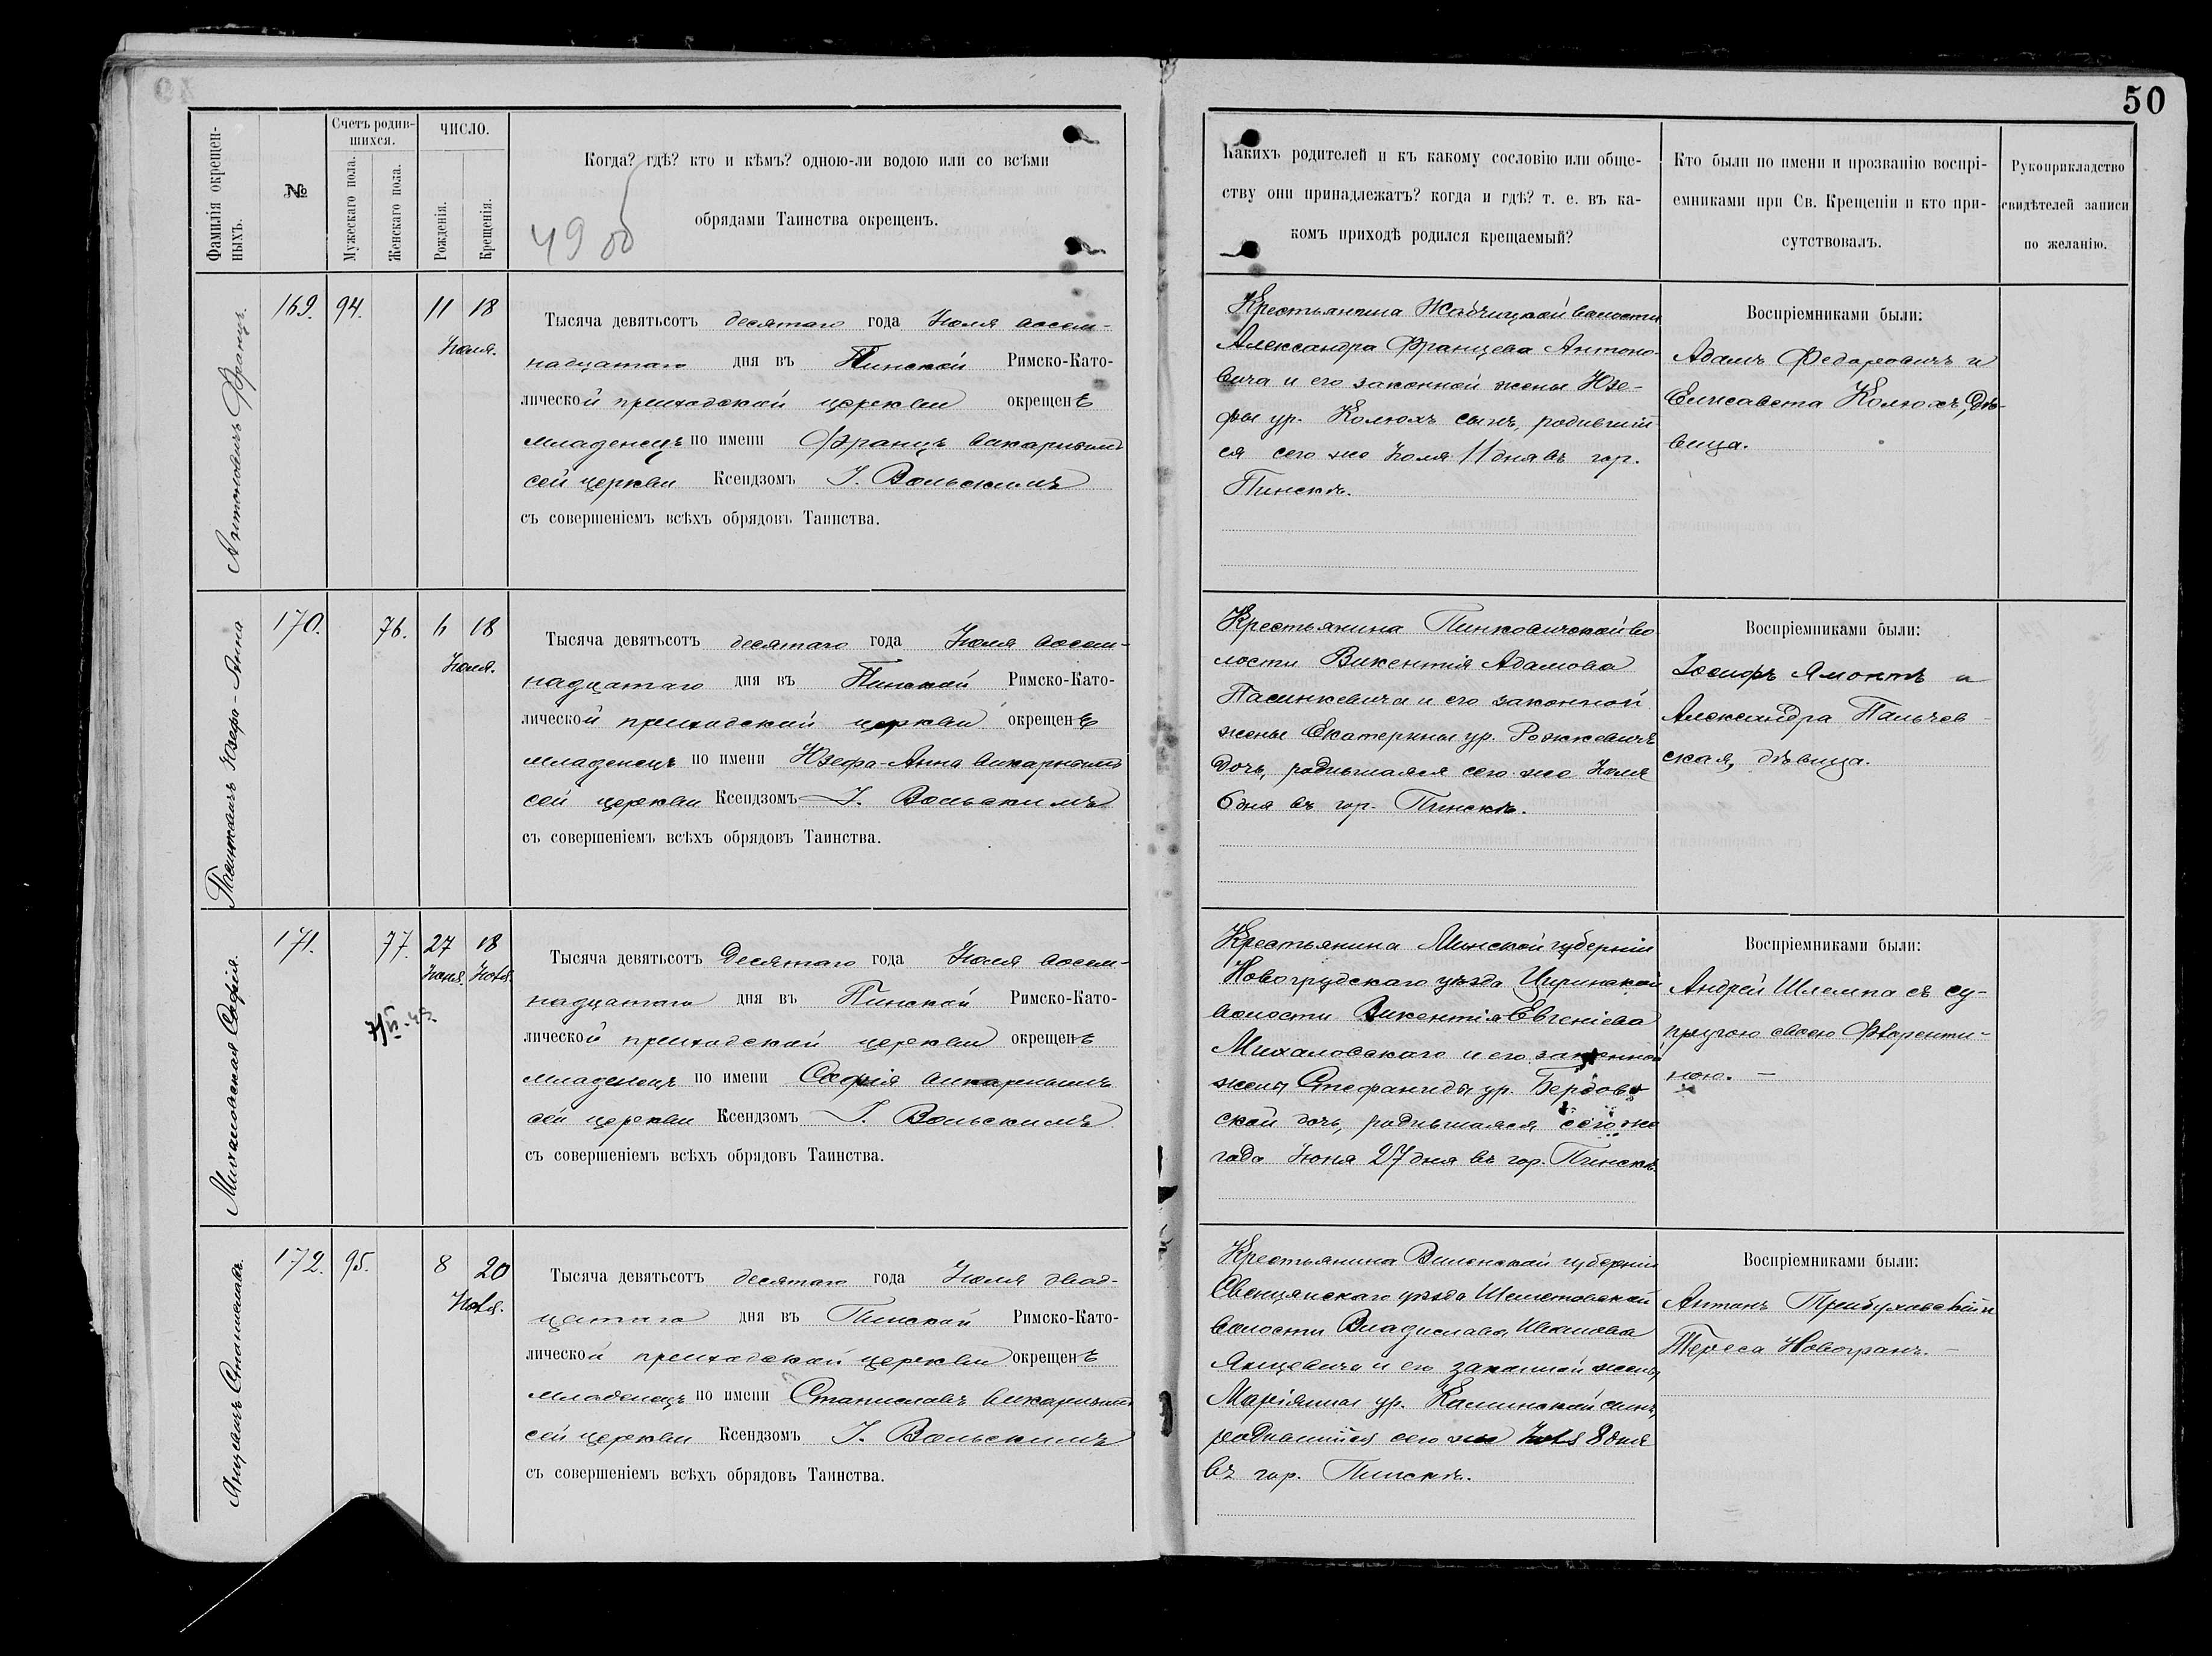 50
Фамилія окрещен-
ныхъ.
№
Счетъ родив-
шихся.
Мужескаго пола.
Женскаго пола.
ЧИСЛО.
Рожденія.
Крещенія.
Когда? гдѣ? кто и кѣмъ? одною-ли водою или со всѣми
обрядами Таинства окрещенъ.
49 об
Какихъ родителей и къ какому сословію или обще-
ству они принадлежатъ? когда и гдѣ? т. е. въ ка-
комъ приходѣ родился крещаемый?
Кто были по имени и прозванію воспрі-
емниками при Св. Крещеніи и кто при-
сутствовалъ.
Рукоприкладство
свидѣтелей записи
по желанію.
Антоновичъ Францъ.
169. 94. 11 18
Іюля.
Тысяча девятьсотъ десятаго года Іюля восем-
надцатаго дня въ Пинской Римско-Като-
лической приходской церкви окрещенъ
младенецъ по имени Францъ викарнымъ
сей церкви Ксендзомъ І. Вольскимъ
съ совершеніемъ всѣхъ обрядовъ Таинства.
Крестьянина Жабчицкой волости
Александра Францева Антоно-
вича и его законной жены Юзе-
фы ур. Колюхъ сынъ, родившій
ся сего же Іюля 11 дня въ гор.
Пинскѣ.
Воспріемниками были:
Адамъ Федоровичъ и
Елисавета Колюхъ, дѣ-
вица.
Пасинкевичъ Юзефа-Анна
170. 76. 6 18
Іюля.
Тысяча девятьсотъ десятаго года Іюля восем-
надцатаго дня въ Пинской Римско-Като-
лической приходской церкви окрещенъ
младенецъ по имени Юзефа-Анна викарнымъ
сей церкви Ксендзомъ І. Вольскимъ
съ совершеніемъ всѣхъ обрядовъ Таинства.
Крестьянина Пинковичской во
лости Викентія Адамова
Пасинкевича и его законной
жены Екатерины ур. Рожкевичъ
дочь, родившаяся сего же Іюля
6 дня въ гор. Пинскѣ.
Воспріемниками были:
Іосифъ Ямонтъ и
Александра Пальчев-
ская, дѣвица.
Михаловская Софія.
171. 77. 27 18
Іюня. Іюля.
Тысяча девятьсотъ десятаго года Іюля восем-
надцатаго дня въ Пинской Римско-Като-
лической приходской церкви окрещенъ
младенецъ по имени Софія викарнымъ
сей церкви Ксендзомъ І. Вольскимъ
съ совершеніемъ всѣхъ обрядовъ Таинства.
Крестьянина Минской губерніи
Новогрудскаго уѣзда Циринской
волости Викентія Евгеніева
Михаловскаго и его законной
жены Стефаниды ур. Бердов
ской дочь, родившаяся сего же
года Іюня 27 дня въ гор. Пинскѣ.
Воспріемниками были:
Андрей Шлемпа съ су-
пругою своею Флоренти-
ною. —
Янцевичъ Станиславъ.
172. 95. 8 20
Іюля.
Тысяча девятьсотъ десятаго года Іюля двад-
цатаго дня въ Пинской Римско-Като-
лической приходской церкви окрещенъ
младенецъ по имени Станиславъ викарнымъ
сей церкви Ксендзомъ І. Вольскимъ
съ совершеніемъ всѣхъ обрядовъ Таинства.
Крестьянина Виленской губерніи
Свенцянскаго уѣзда Шеметовской
волости Владислава Иванова
Янцевича и его законной жены
Маріянны ур. Калинской сынъ,
родившійся сего же Іюля 8 дня
въ гор. Пинскѣ.
Воспріемниками были:
Антонъ Трибуховскій и
Тереса Новогранъ. —